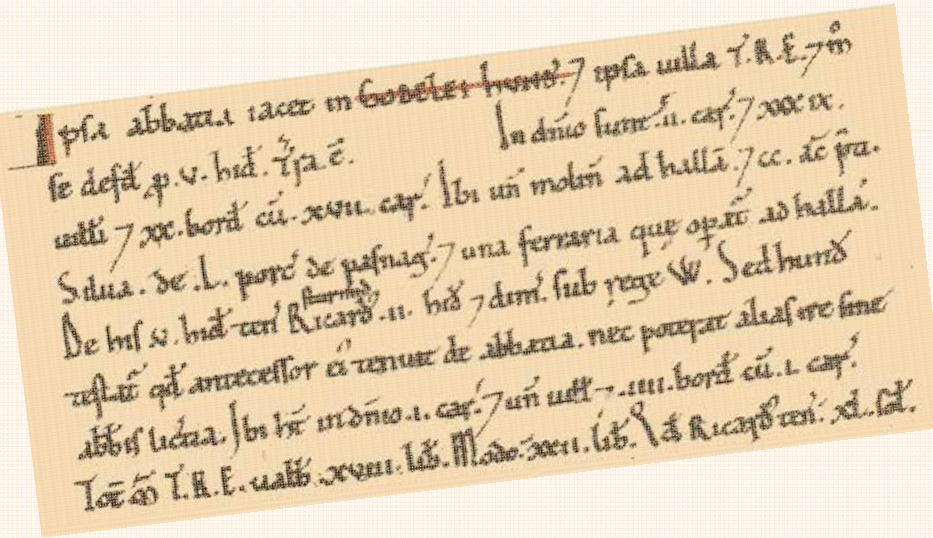 Ipsa abbatia iacet in GODELEI hund'. ⁊ ipsa uilla T.R.E. ⁊ m̊
se defd̄ p̱ .v. hid̄. Tr̄a .ē. In dn̄io sunt .ii. car̄. ⁊ xxxix.
uilli ⁊ xx. bord̄ cū .xvii. car̄. Ibi un̄ molin̄ ad hallā. ⁊ cc. ac̄ p̄ti.
Silua. de .L. porc̄ de pasnag'. ⁊ una ferraria quę opat̄ ad hallā.
De his .v. hid̄ ten' Ricard' sturmid .ii. hid̄ ⁊ dim̄. sub rege W. Sed hund̄
testat̄ qd̄ antecessor ei' tenuit de abbatia. nec poterat alias ire sine
abb̄is lictia. Ibi ht̄ in dn̄io .i. car̄. ⁊ un̄ uill̄ ⁊ .iiii. bord̄ cū .i. car̄.
Tot̄ m̄ T.R.E. ualb̄ .xviii. lib̄. Modo .xxii. lib̄. Qd̄ Ricard' ten'. xl. sol̄.